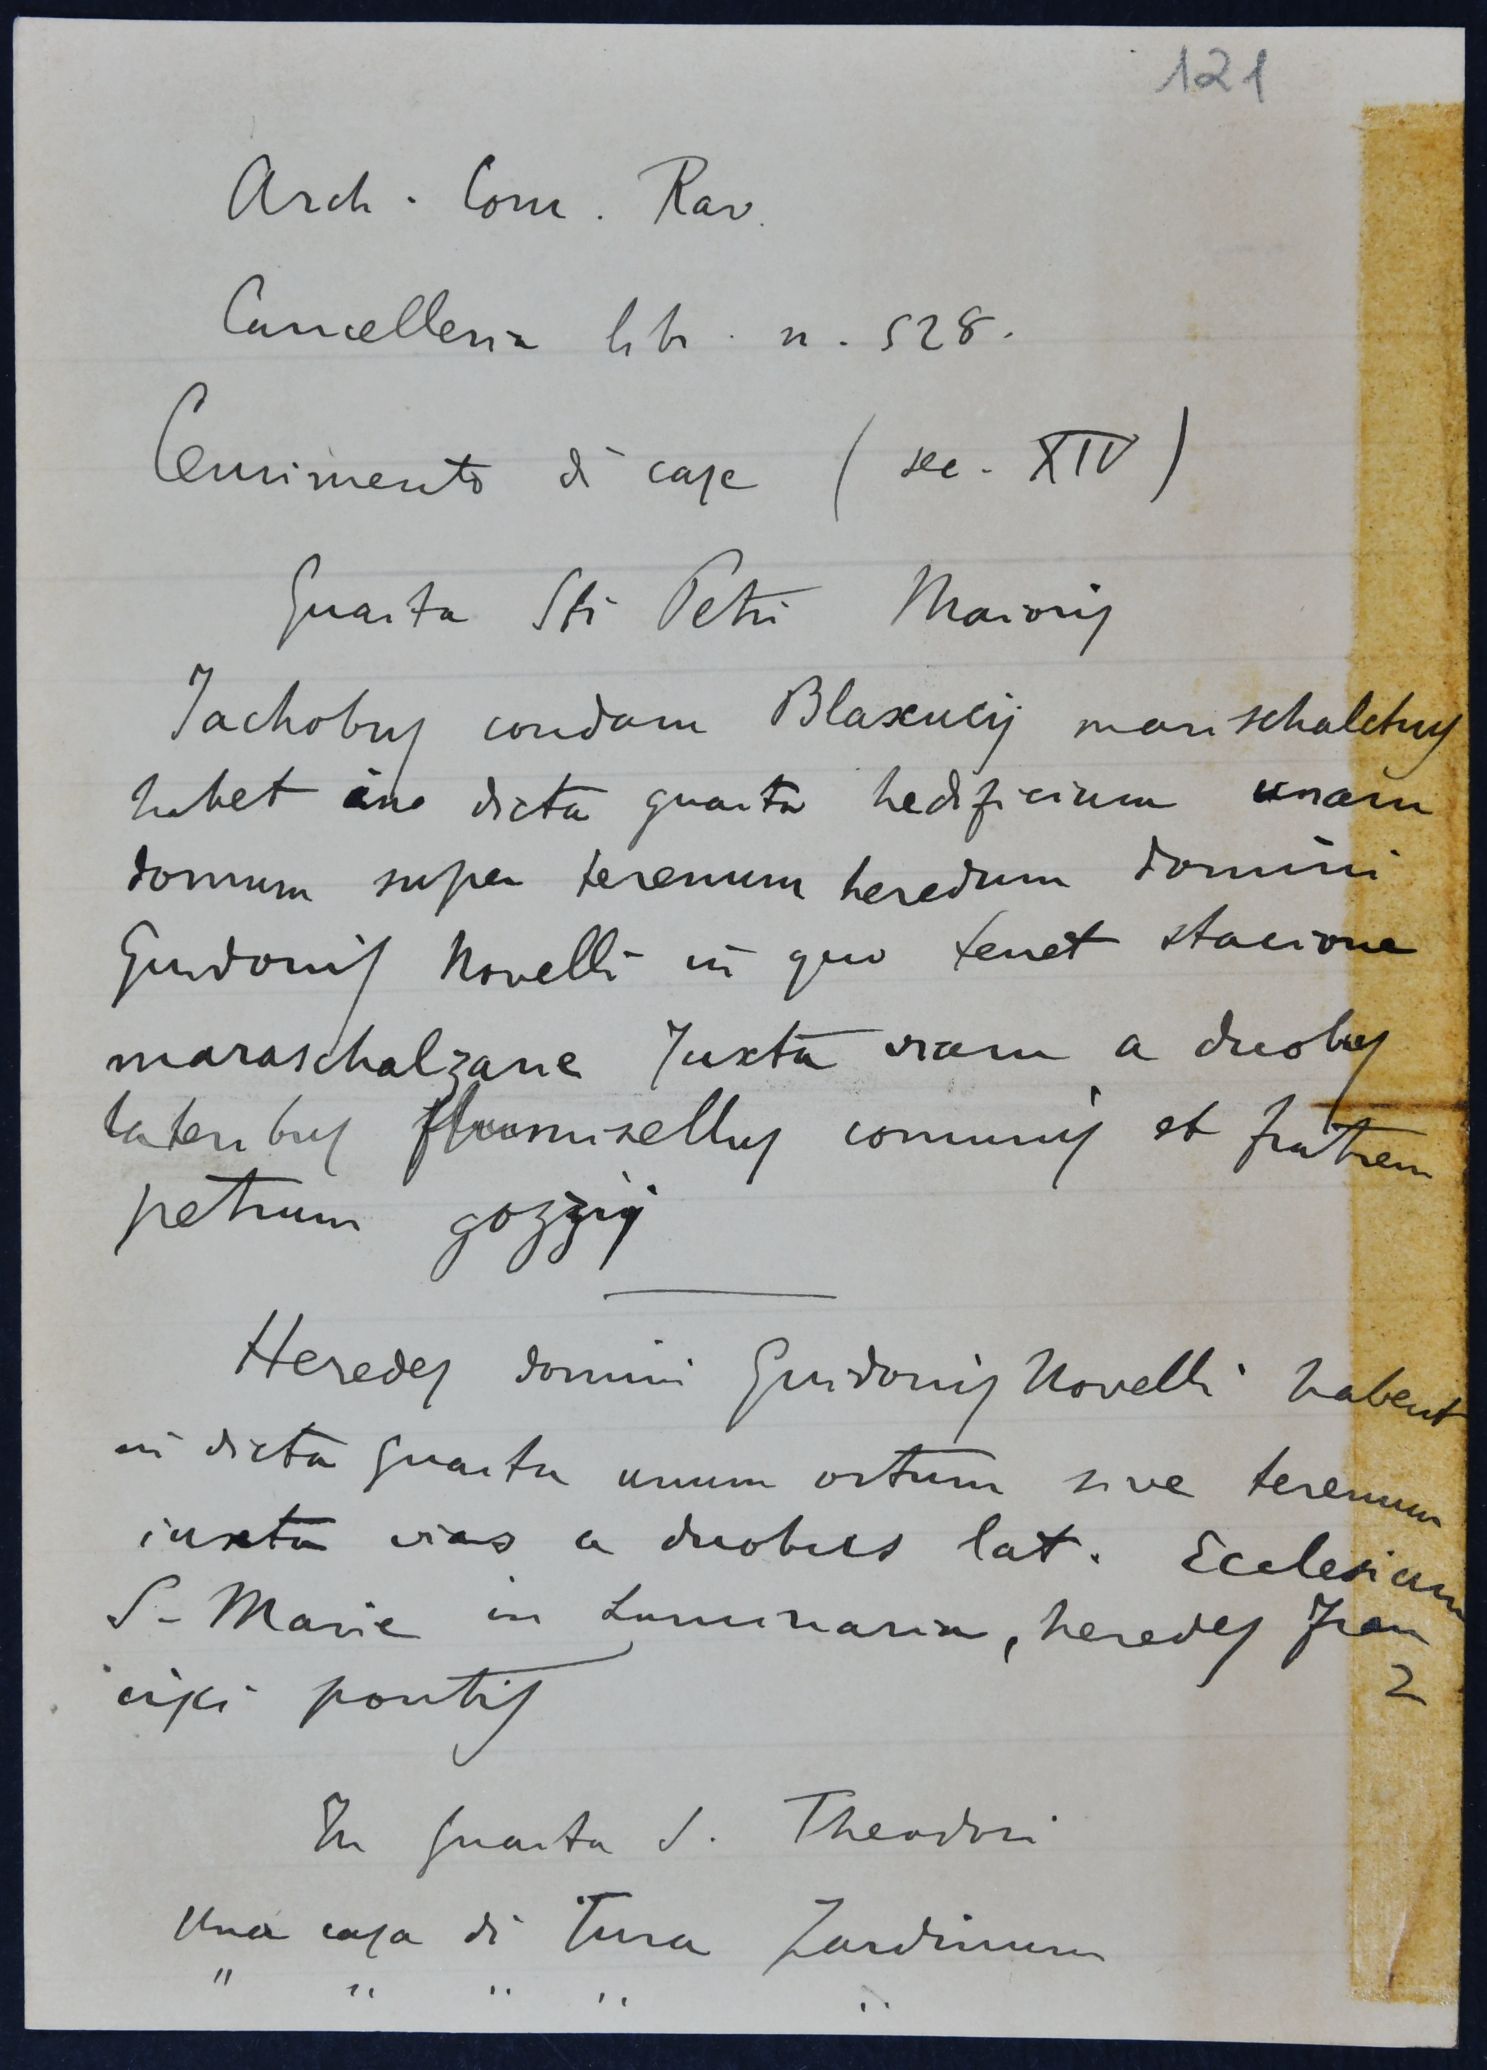 121
Arch. Com. Rav.
Cancelleria libr. n. 528.
Censimento di case (sec. XIV)
Guaita Sti Petri Maioris
Jachobus condam Blaxucij marischalchus
habet in dicta guaita hedificium unam
domum super terenum heredum domini
Guidonis Novelli in quo tenet stacione
maraschalzarie Juxta viam a duobus
lateribus flumisellus comunis et fratrem
petrum gozzij
Heredes domini Guidonis Novelli habent
in dicta Guaita unum ortum sive terenum
iuxta vias a duobus lat. Ecclesiam
S. Marie in Luminaria, heredes Fran
cisci pontis
2
In Guaita S. Theodori
Una casa di Tura Zardinum
" " " " "